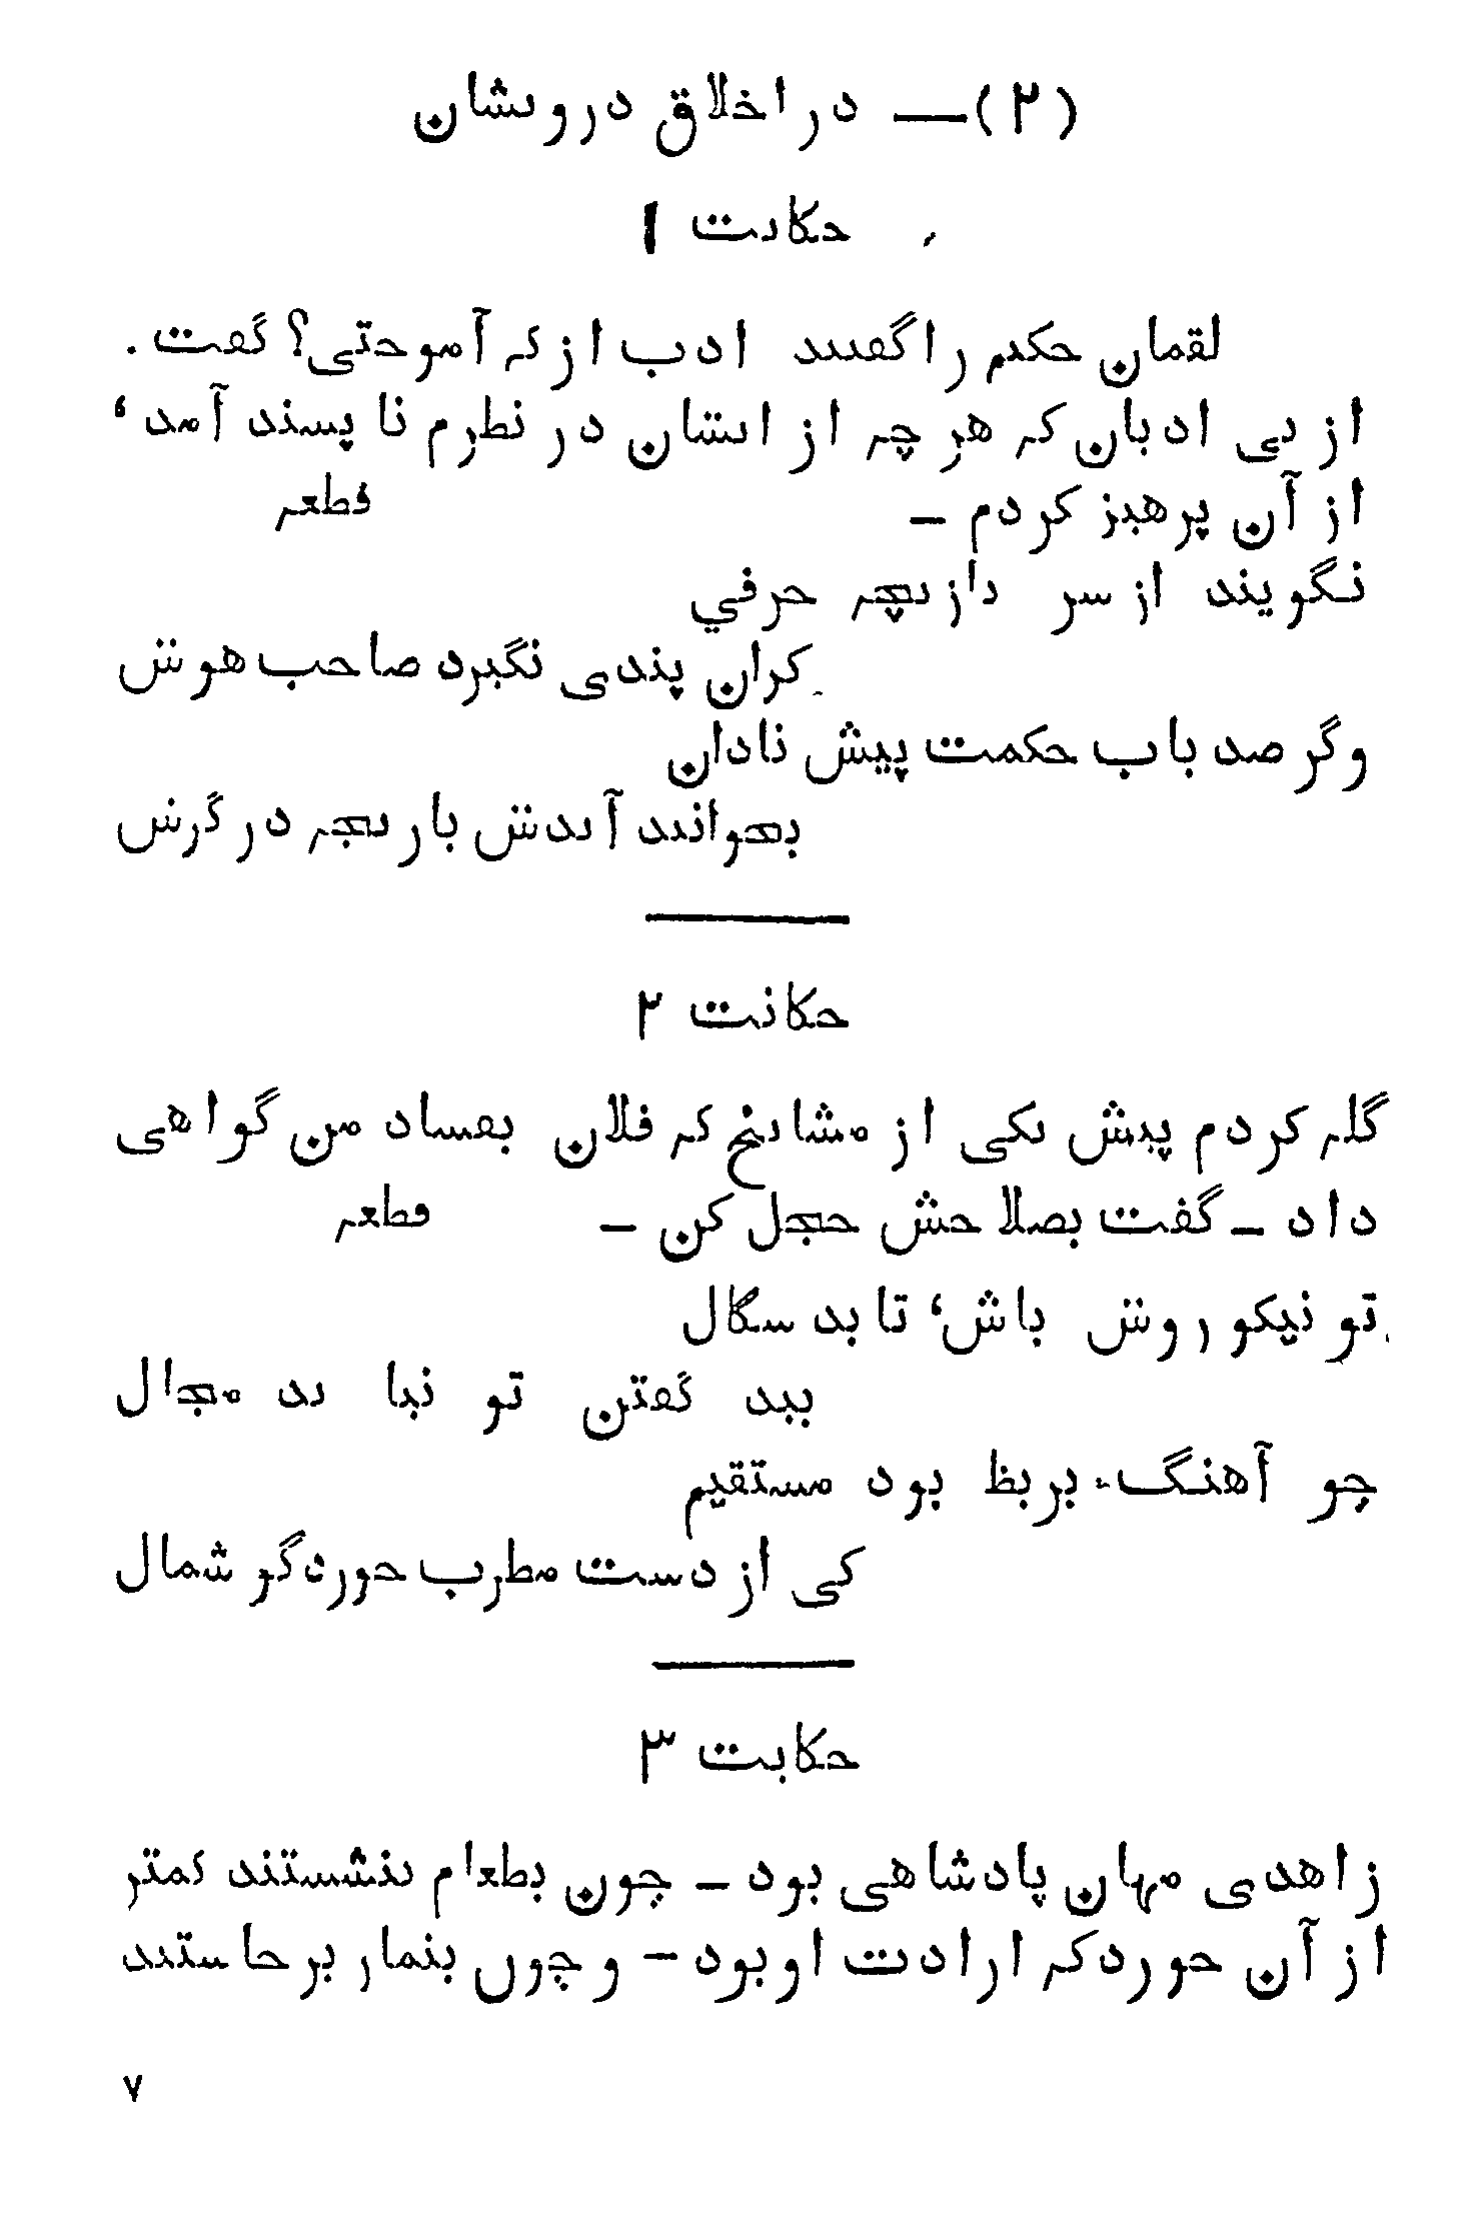 (۲) — در اخلاق درویشان
حکایت ۱
لقمان حکیم را گفتند ادب از که آموختی؟ گفت .
از بی ادبان که هر چه از ایشان در نظرم نا پسند آمد ،
از آن پرهیز کردم — قطعه
نگویند از سر بازیچه حرفي
کزان پندی نگیرد صاحب هوش
وگر صد باب حکمت پیش نادان
بخوانند آیدش بازیچه در گوش
حکایت ۲
گله کردم پیش یکی از مشایخ که فلان بفساد من گواهی
داد — گفت بصلاحش خجل کن — قطعه
تو نیکو روش باش، تا بد سگال
ببد گفتن تو نیا بد مجال
چو آهنگ بربط بود مستقیم
کی از دست مطرب خورد گو شمال
حکایت ۳
زاهدی مهمان پادشاهی بود — چون بطعام بنشستند کمتر
از آن خورد که ارادت او بود — و چون بنماز بر خاستند
۷